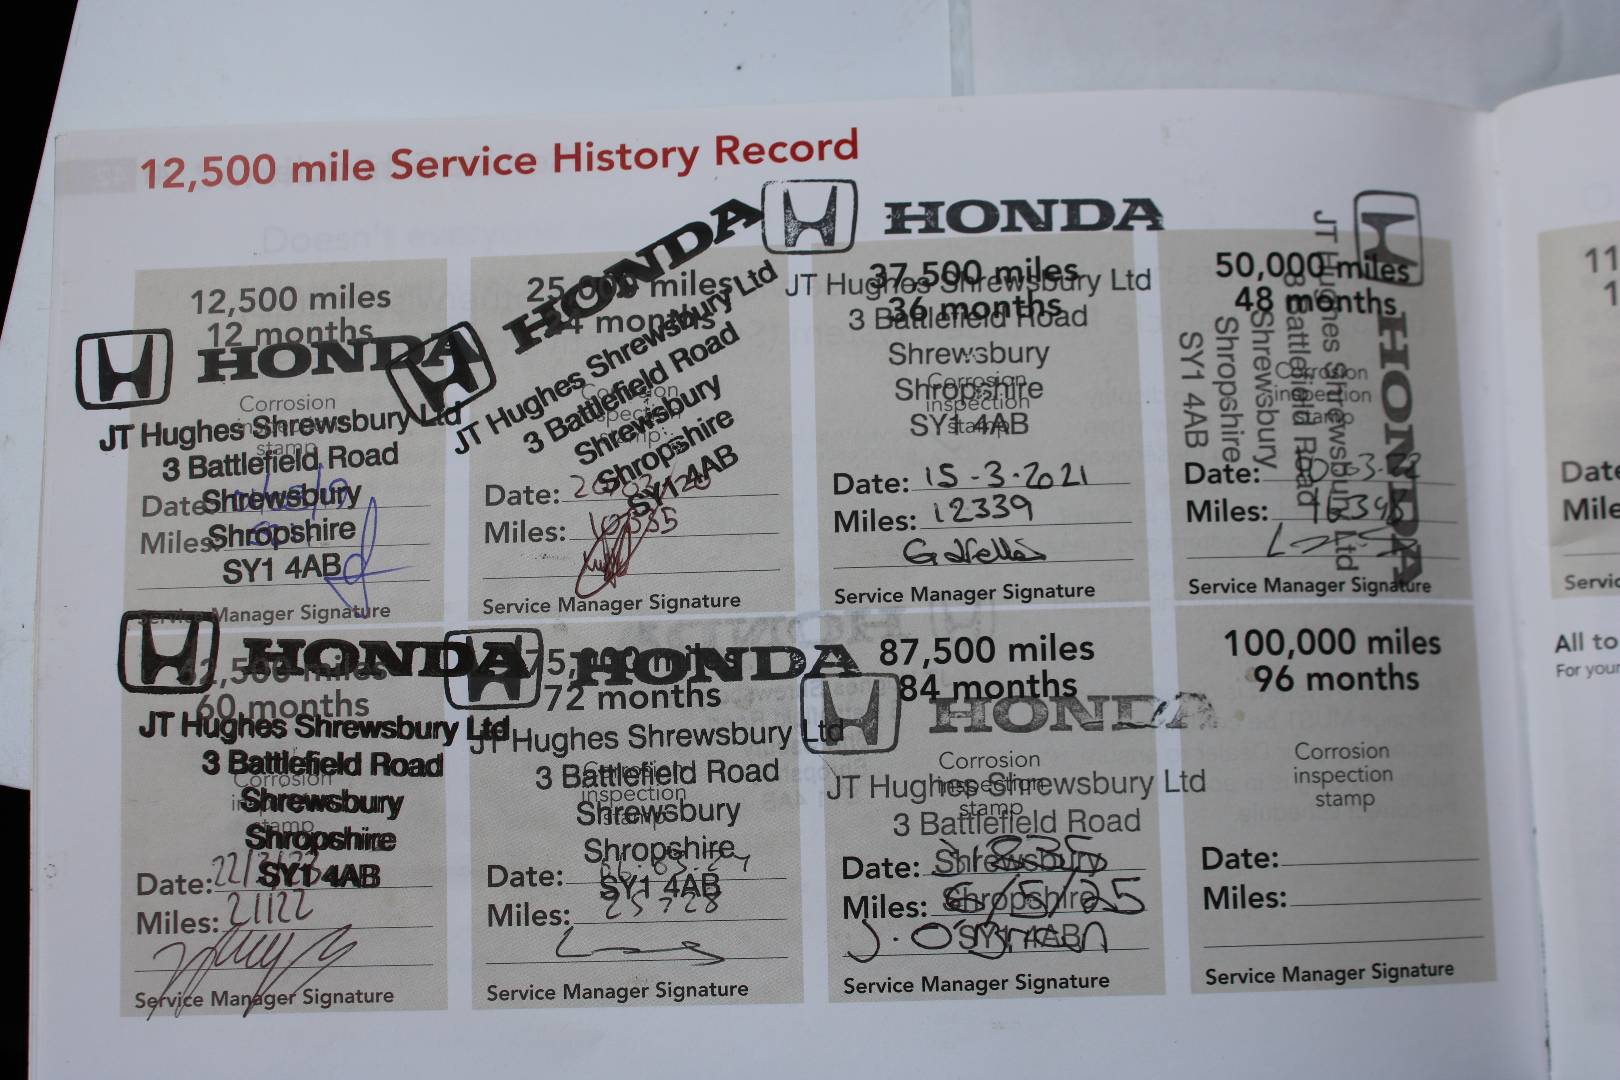 12,500 mile Service History Record
12,500 miles
12 months
HONDA
Corrosion
JT Hughes Shrewsbury Ltd
stamp
3 Battlefield Road
Date:
Shrewsbury
Miles:
Shropshire
SY1 4AB
Service Manager Signature
25,000 miles
24 months
HONDA
JT Hughes Shrewsbury Ltd
3 Battlefield Road
Shrewsbury
Shropshire
SY1 4AB
Corrosion
inspection
stamp
Date:
Miles:
Service Manager Signature
HONDA
37,500 miles
JT Hughes Shrewsbury Ltd
36 months
3 Battlefield Road
Shrewsbury
Shropshire
Corrosion
inspection
SY1 4AB
stamp
Date: 15-3-2021
Miles: 12339
Service Manager Signature
50,000 miles
48 months
HONDA
JT Hughes Shrewsbury Ltd
3 Battlefield Road
Shrewsbury
Shropshire
SY1 4AB
Corrosion
inspection
stamp
Date:
Miles:
Service Manager Signature
62,500 miles
HONDA
60 months
JT Hughes Shrewsbury Ltd
3 Battlefield Road
Corrosion
Shrewsbury
stamp
Shropshire
SY1 4AB
Date: 22/3/23
Miles: 21122
Service Manager Signature
75,000 miles
HONDA
72 months
JT Hughes Shrewsbury Ltd
3 Battlefield Road
Corrosion
inspection
Shrewsbury
stamp
Shropshire
SY1 4AB
Date:
Miles: 25728
Service Manager Signature
87,500 miles
84 months
HONDA
Corrosion
inspection
JT Hughes Shrewsbury Ltd
stamp
3 Battlefield Road
Date:
Shrewsbury
Miles: 6/5/25
Shropshire
J. O'Brien
SY1 4AB
Service Manager Signature
100,000 miles
96 months
Corrosion
inspection
stamp
Date:
Miles:
Service Manager Signature
11
1
Date
Mile
Servic
All to
For your